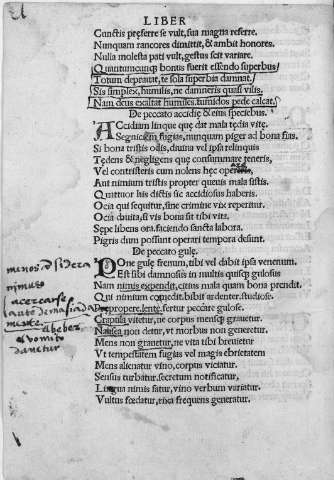 LIBER
Cunctis præferre se vult, sua magna referre.
Nunquam rancores dimittit, & ambit honores.
Nulla molesta pati vult, gestus scit variare.
Quantumcunq; bonus fuerit essendo superbus
Totum depravat, te sola superbia damnat.
Sis simplex, humilis, ne damneris quasi vilis.
Nam deus exaltat humiles. tumidos pede calcat.
De peccato accidiæ & eius speciebus.
Accidiam linque que dat mala tedia vitę.
Segniciem fugias, nunquam piger ad bona fias.
Si bona tristis olis, divina vel ipsa relinquis
Tędens & negligens que consummare teneris,
Vel contristeris cum nolens hęc
Aut nimium tristis propter quevis mala sistis.
Quatuor his dictis sic accidiosus haberis.
Ocia qui sequitur, sine crimine vix reperitur.
Ocia devita, si vis bona sit tibi vita.
Sępe libens ora. faciendo sancta labora.
Pigris dum possunt operari tempora desunt.
De peccato gulę.
Pone gulę frenum, tibi vel dabit ipsa venenum.
Est sibi damnosis in multis quisq; gulosus
Nam nimis expendit, citius mala quam bona prendit.
Qui nimium comedit. bibit ardenter, studiose.
Prępropere, lente. fertur peccare gulose.
Crapula vitetur, ne corpus mensq; gravetur.
Nausea non detur, ut morbus non generetur.
Mens non gravetur, ne vita tibi brevietur
Ut tempestatem fugias vel magis ebrietatem
Mens alienatur vino, corpus viciatur.
Sensus turbatur. secretum notificatur,
Lingua nimis fatur, vino verbum variatur.
Vultus fœdatur, rixa frequens generatur.
acercarse
el beber
el bomito